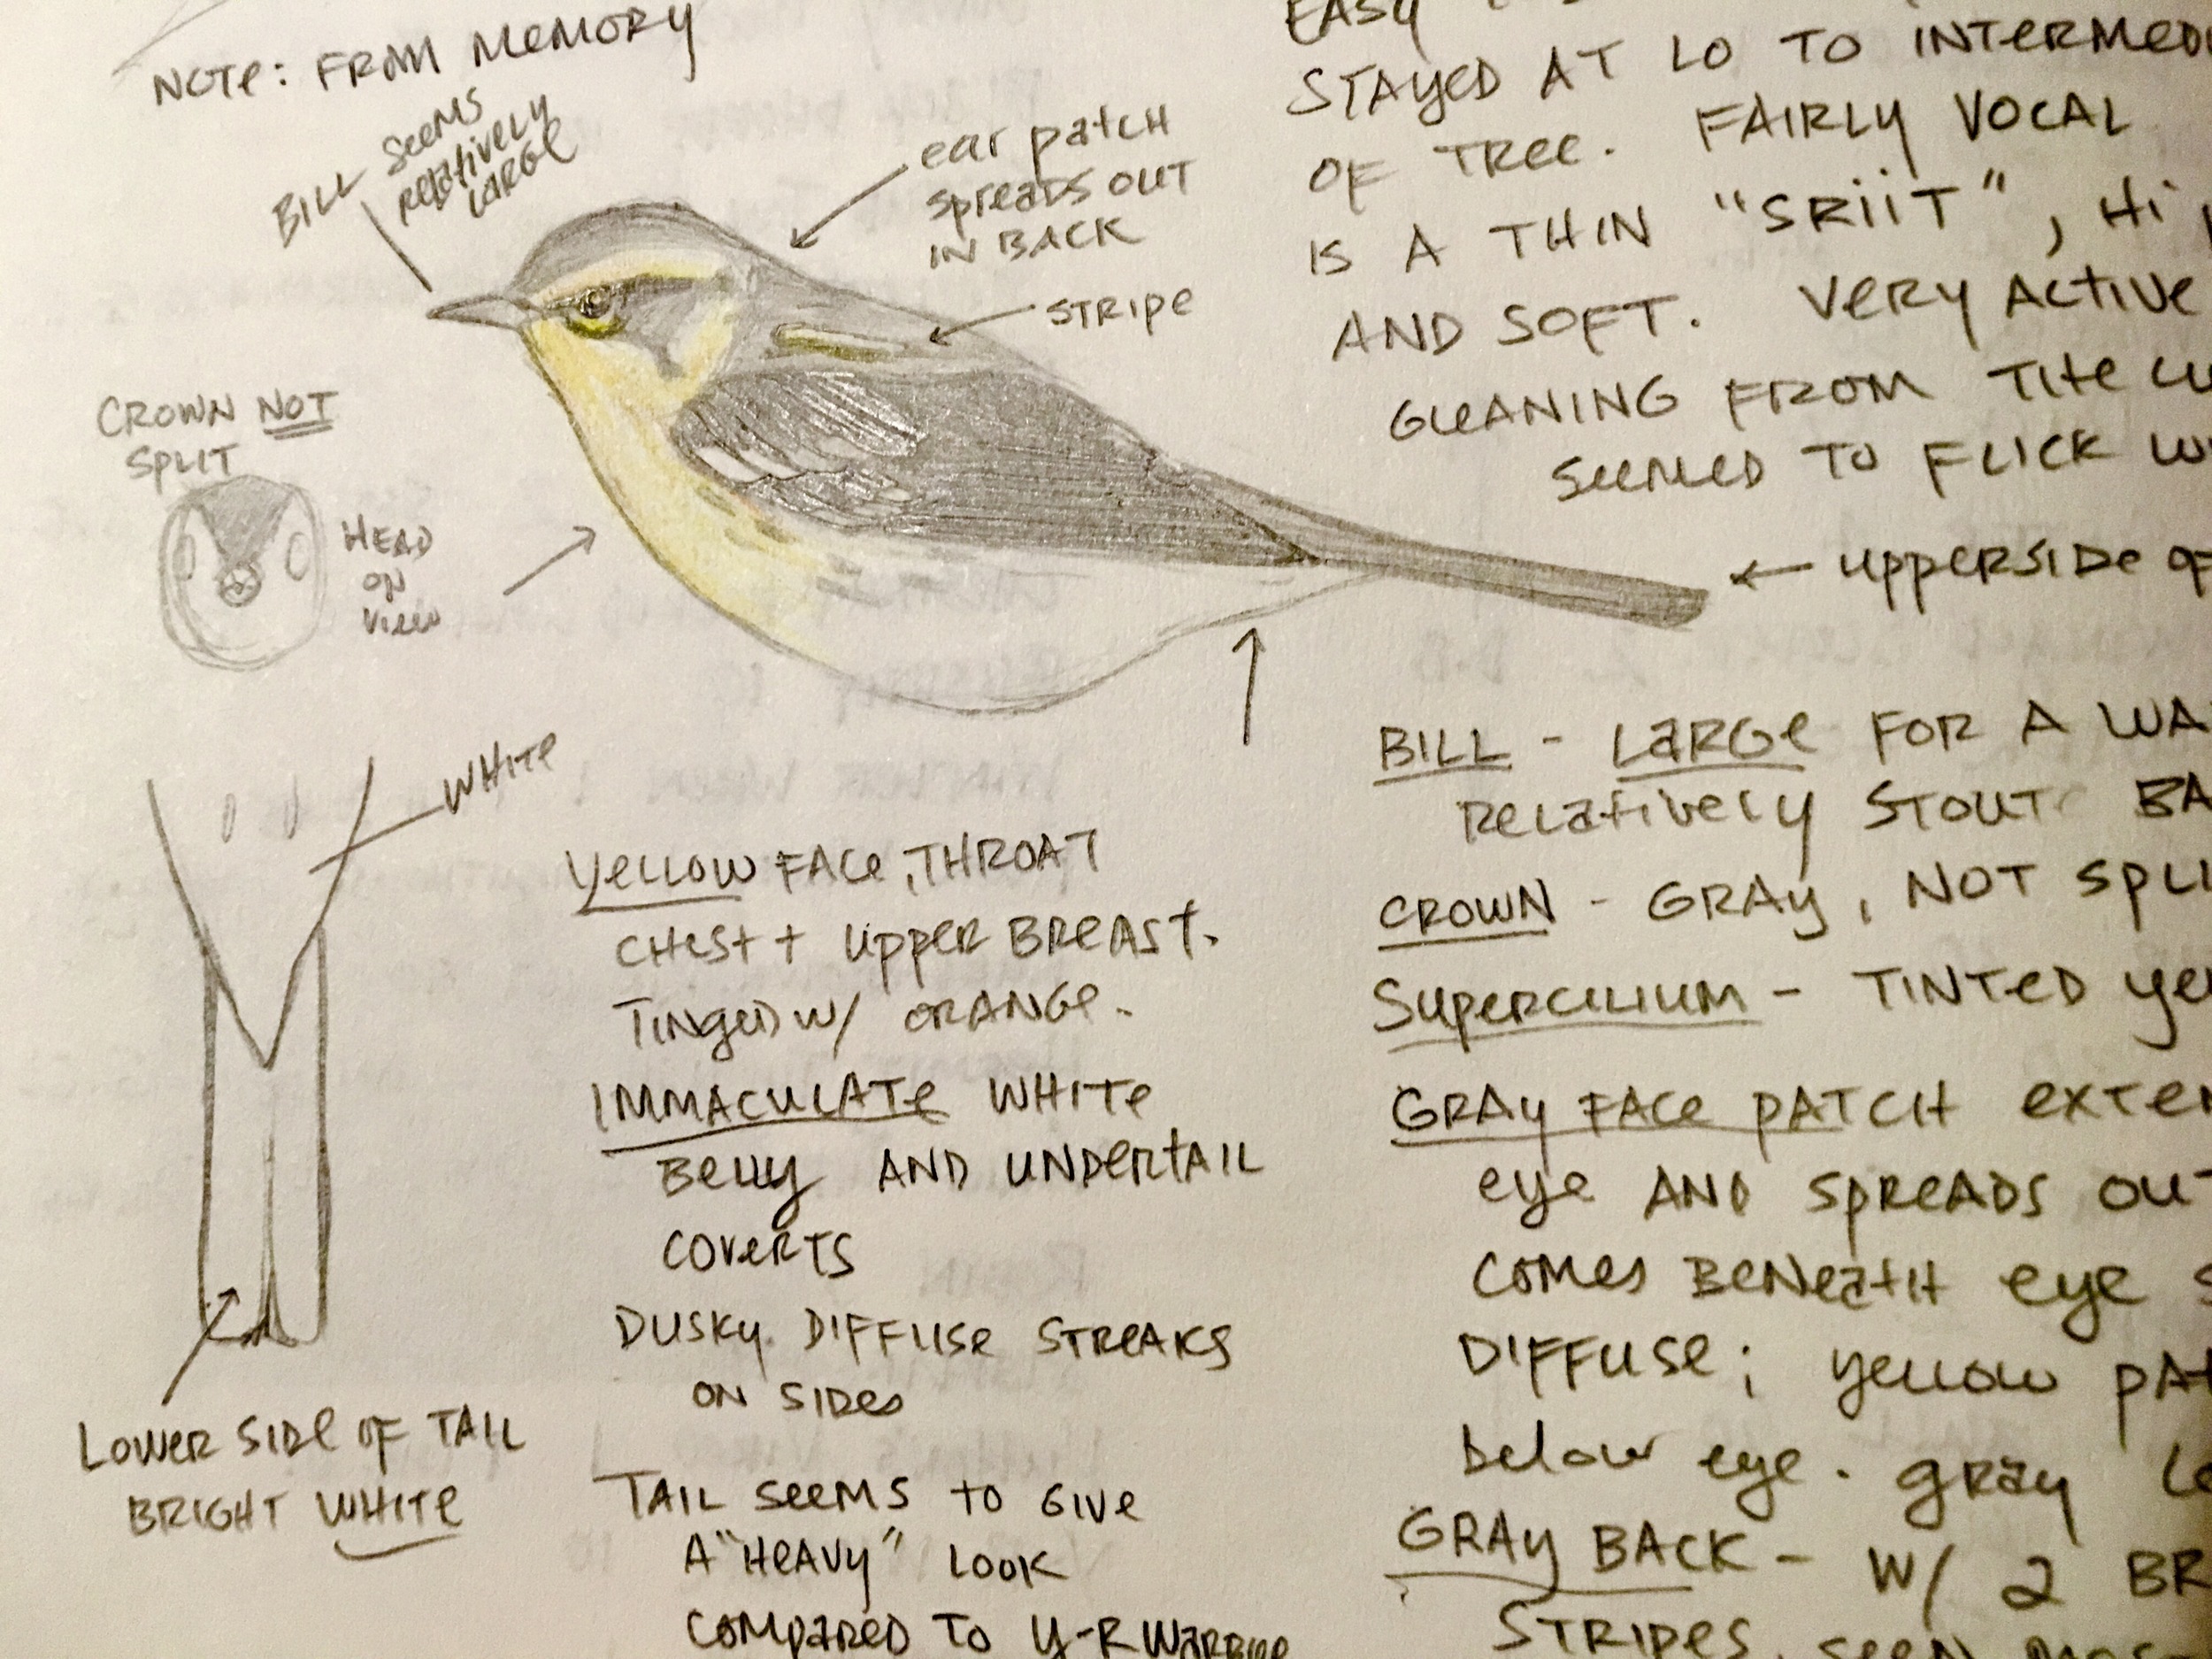 NOTE: FROM MEMORY
BILL SEEMS
RELATIVELY
LARGE
EAR PATCH
SPREADS OUT
IN BACK
STRIPE
CROWN NOT
SPLIT
HEAD
ON
VIEW
WHITE
LOWER SIDE OF TAIL
BRIGHT WHITE
YELLOW FACE, THROAT
CHEST + UPPER BREAST.
TINGED W/ ORANGE.
IMMACULATE WHITE
BELLY AND UNDERTAIL
COVERTS
DUSKY DIFFUSE STREAKS
ON SIDES
TAIL SEEMS TO GIVE
A "HEAVY" LOOK
COMPARED TO Y-R WARBLER
EASY
STAYED AT LO TO INTERMED
OF TREE. FAIRLY VOCAL
IS A THIN "SRIIT", HI,
AND SOFT. VERY ACTIVE
GLEANING FROM THE
SEEMED TO FLICK
UPPERSIDE OF
BILL - LARGE FOR A WA
RELATIVELY STOUT BA
CROWN - GRAY, NOT SPLI
SUPERCILIUM - TINTED YE
GRAY FACE PATCH EXTE
EYE AND SPREADS OU
COMES BENEATH EYE S
DIFFUSE; YELLOW PAT
BELOW EYE. GRAY LO
GRAY BACK - W/ 2 BR
STRIPES, SEEN MOS